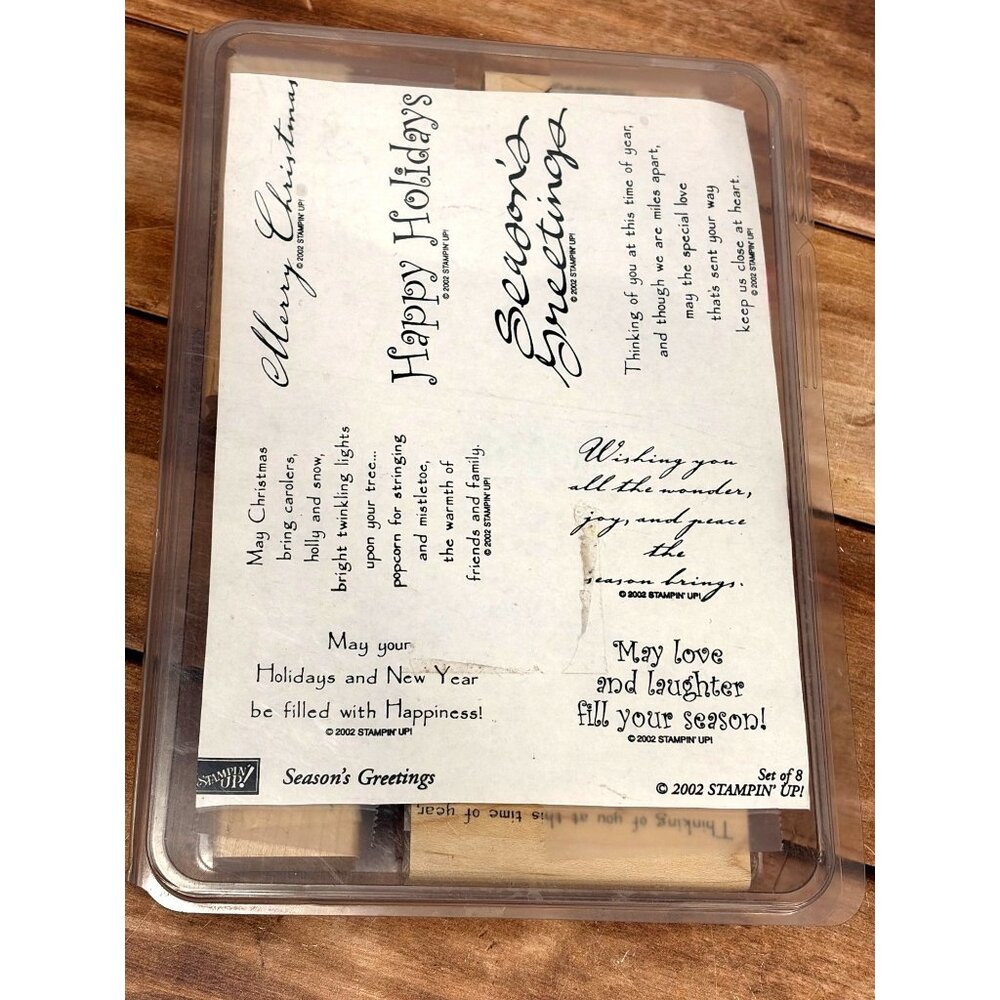 Merry Christmas
© 2002 STAMPIN' UP!
Happy Holidays
© 2002 STAMPIN' UP!
Season's
Greetings
© 2002 STAMPIN' UP!
Thinking of you at this time of year,
and though we are miles apart,
may the special love
that's sent your way
keep us close at heart.
© 2002 STAMPIN' UP!
May Christmas
bring carolers,
holly and snow,
bright twinkling lights
upon your tree...
popcorn for stringing
and mistletoe,
the warmth of
friends and family.
© 2002 STAMPIN' UP!
Wishing you
all the wonder,
joy, and peace
the
season brings.
© 2002 STAMPIN' UP!
May your
Holidays and New Year
be filled with Happiness!
© 2002 STAMPIN' UP!
May love
and laughter
fill your season!
© 2002 STAMPIN' UP!
STAMPIN' UP!
Season's Greetings
Set of 8
© 2002 STAMPIN' UP!
Thinking of you at this time of year,